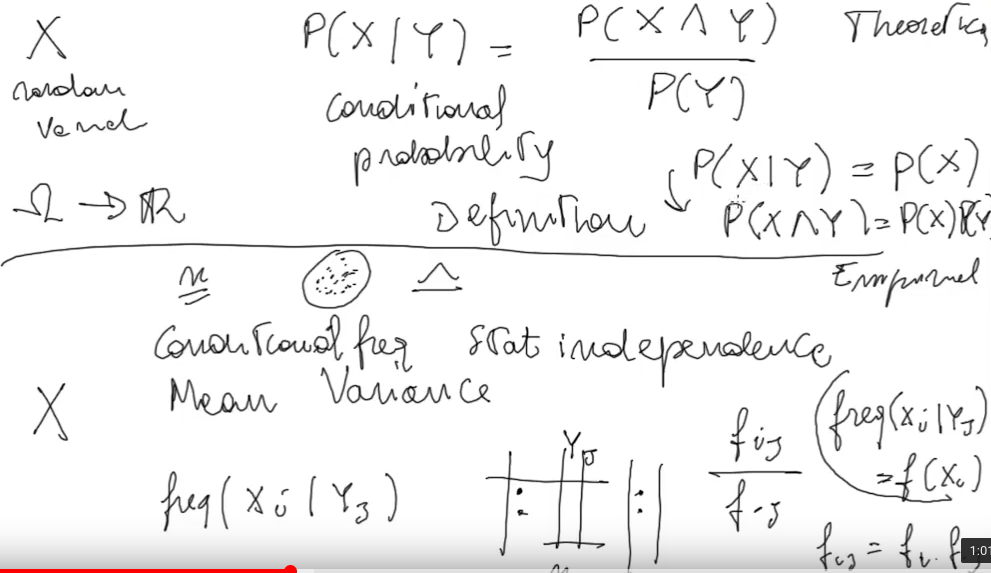 X P(X|Y) = P(X ∧ Y) / P(Y) Theoretica
random
Conditional
probability
Ω → ℝ Definition
P(X|Y) = P(X)
↓ P(X∧Y) = P(X)P(Y)
n Ω Empirical
Conditional freq Stat independence
X Mean Variance
freq(Xi | Yj)
Yj
fij / f·j
freq(Xi|Yj)
= f(Xi)
fij = fi· f
n
1:01